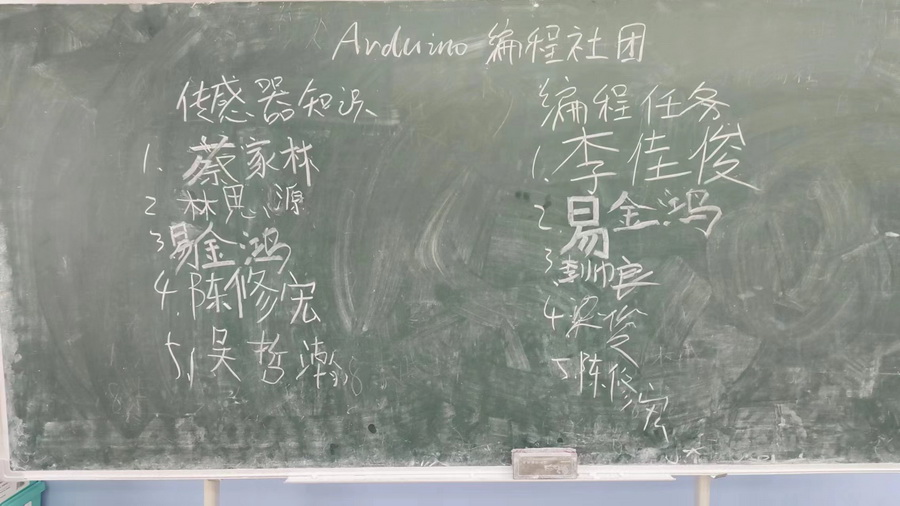 Arduino 编程社团
传感器知识
1. 蔡家林
2 林思源
3 易金鸿
4. 陈修宏
5. 吴哲瀚
编程任务
1. 李佳俊
2 易金鸿
3. 彭帅良
4 梁俊
5. 陈修宏